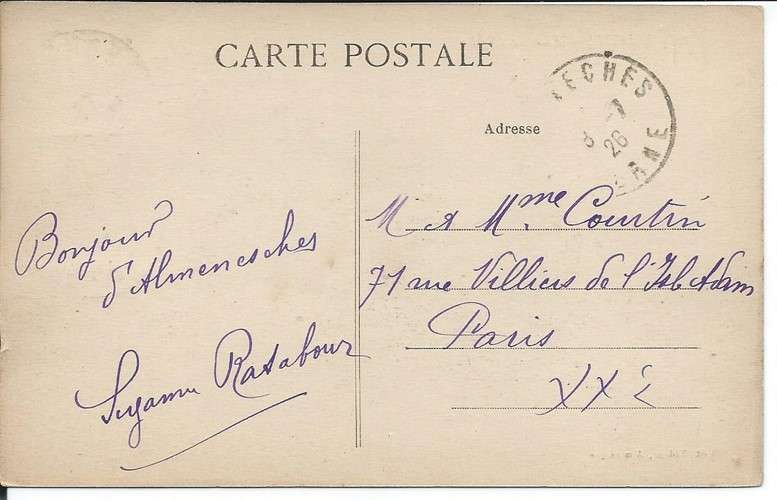 CARTE POSTALE
Adresse
ECHES
8
26
RNE
Bonjour
d'Almenesches
Suzanne Ratabour
M et Mme Courtin
71 rue Villiers de l'Isle Adam
Paris
XXe